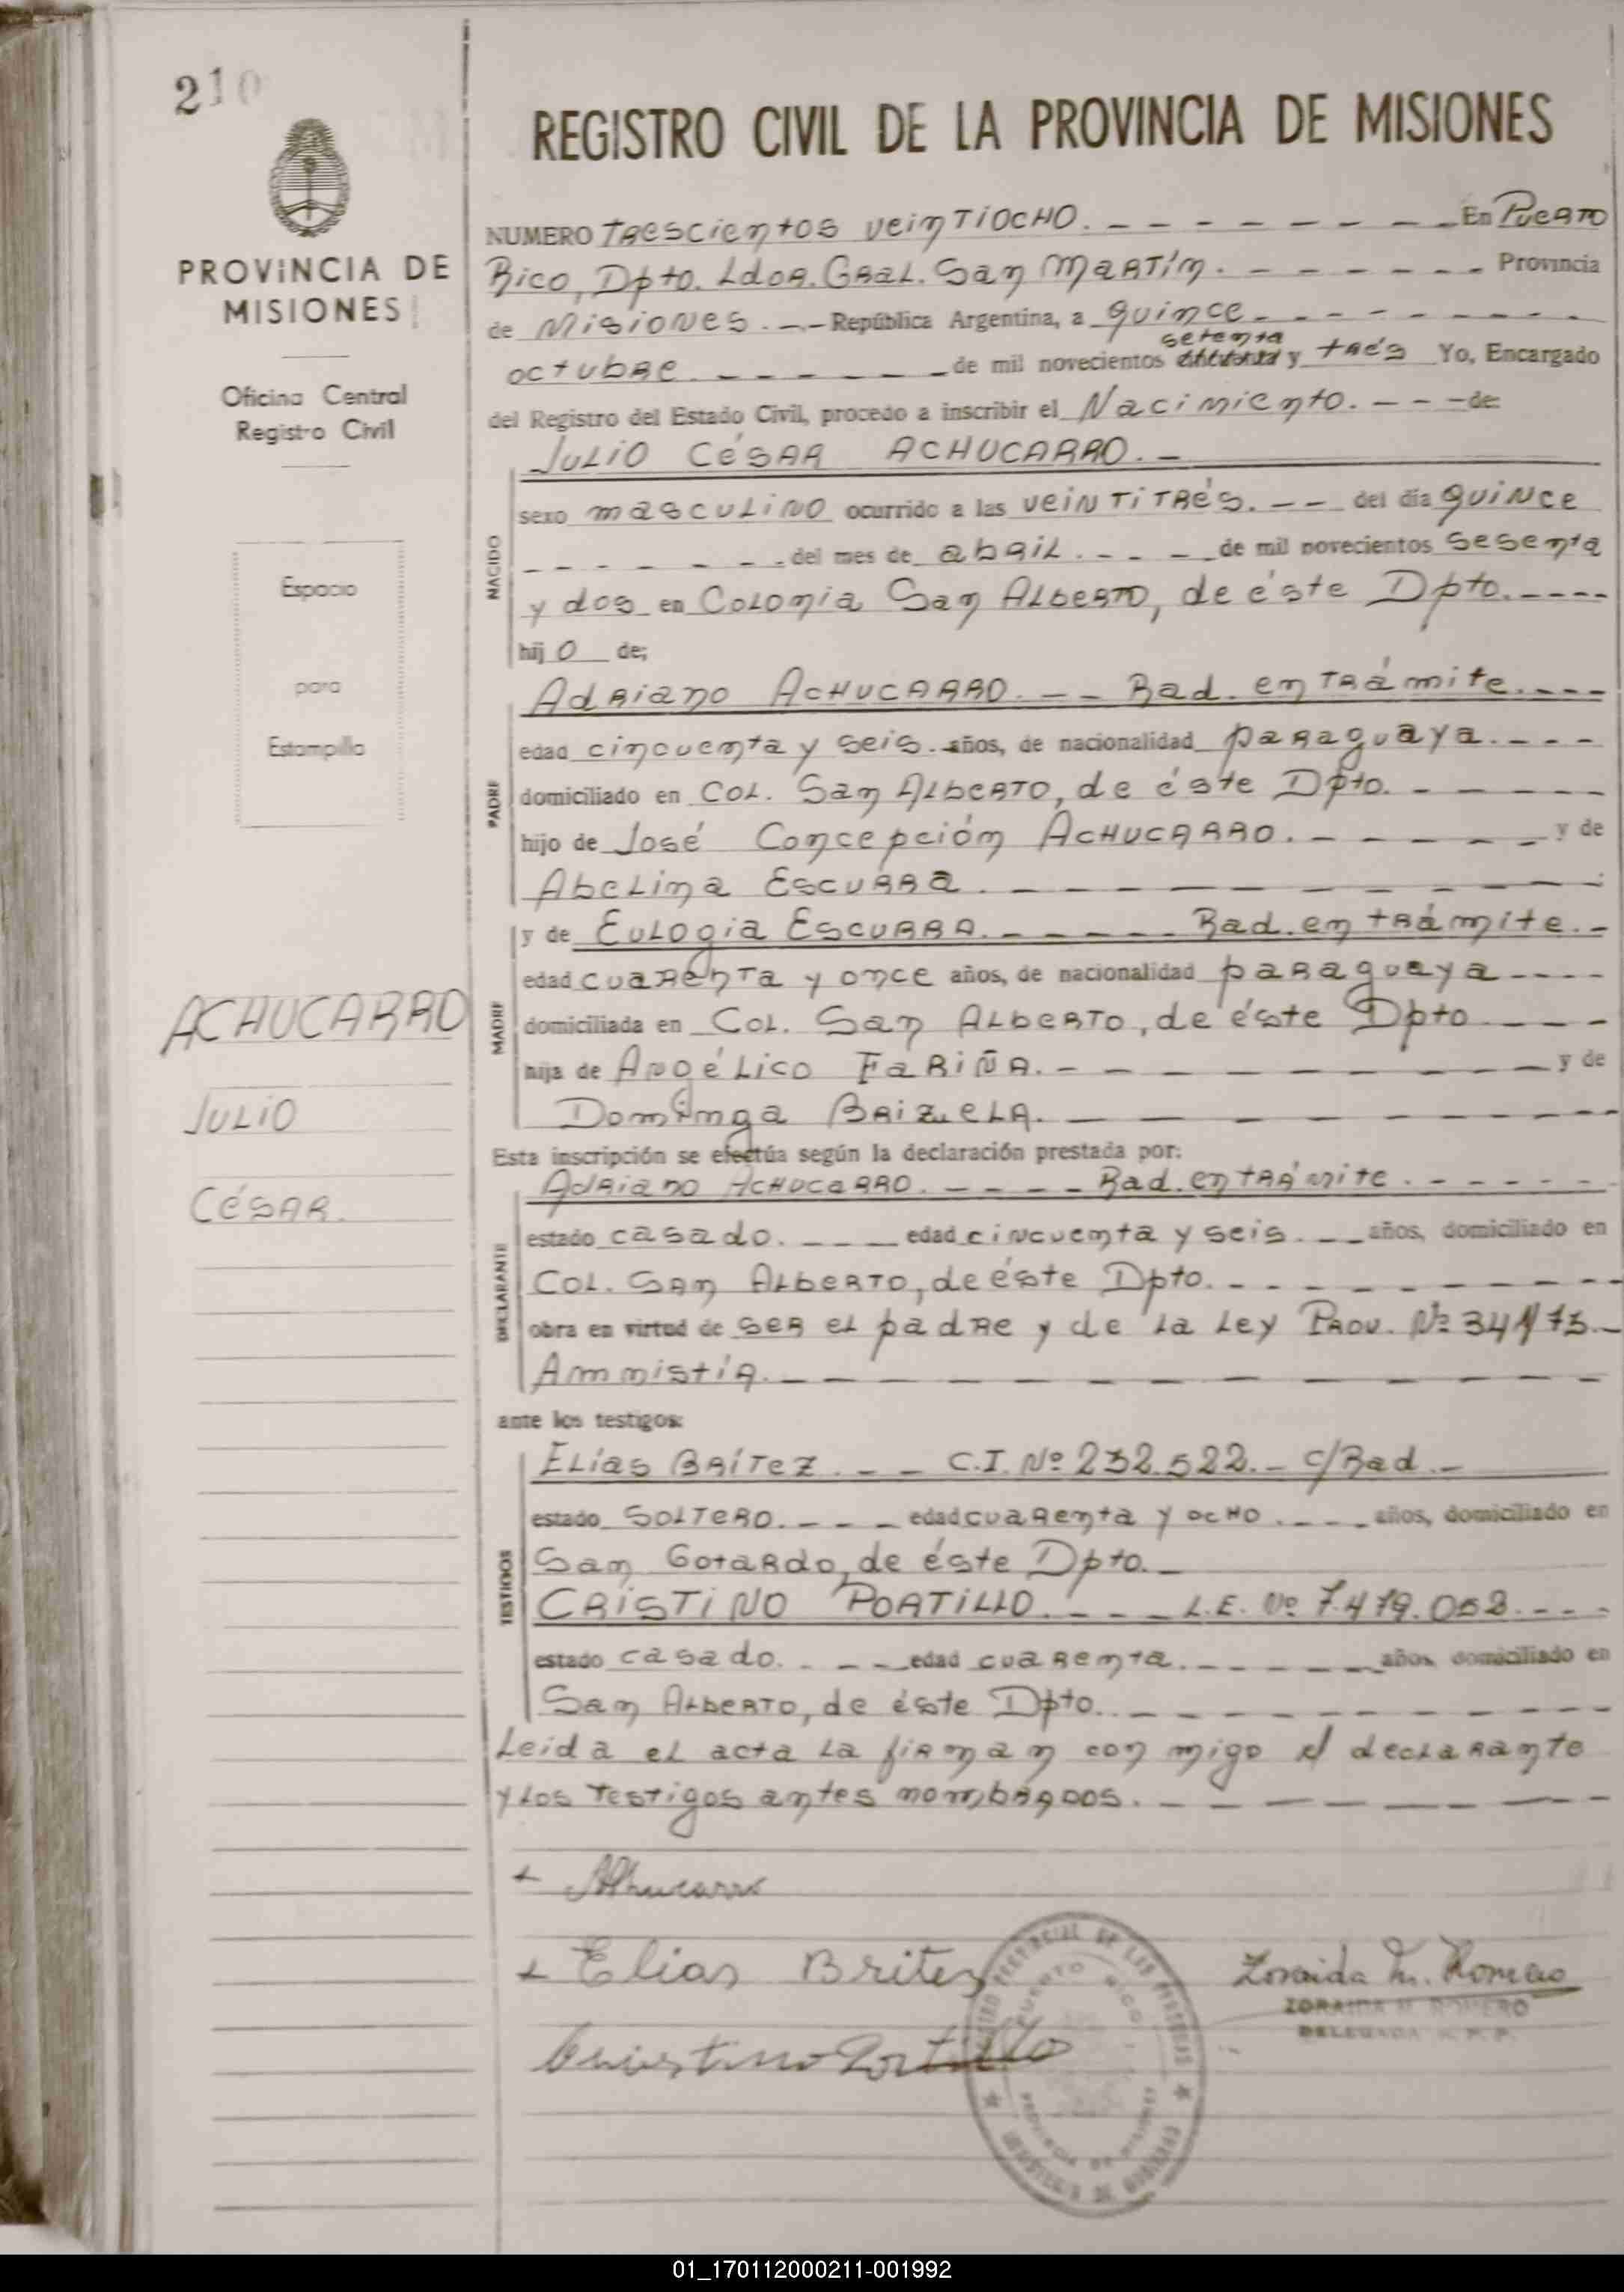 210
PROVINCIA DE
MISIONES
Oficina Central
Registro Civil
Espacio
para
Estampilla
ACHUCARRO
JULIO
CÉSAR.
REGISTRO CIVIL DE LA PROVINCIA DE MISIONES
NUMERO trescientos veintiocho. En Puerto
Rico, Dpto. Ldor. Gral. San Martín. Provincia
de Misiones. República Argentina, a quince
setenta
octubre de mil novecientos y trés Yo, Encargado
del Registro del Estado Civil, procedo a inscribir el Nacimiento. de
JULIO CÉSAR ACHUCARRO.
NACIDO
sexo masculino ocurrido a las veintitrés. del día quince
del mes de abril. de mil novecientos sesenta
y dos en Colonia San Alberto, de éste Dpto.
hij o de;
PADRE
Adriano ACHUCARRO. Rad. en trámite.
edad cincuenta y seis. años, de nacionalidad paraguaya.
domiciliado en Col. San Alberto, de éste Dpto.
hijo de José Concepción ACHUCARRO. y de
Abelina Escurra.
MADRE
y de Eulogia Escurra. Rad. en trámite.
edad cuarenta y once años, de nacionalidad paraguaya
domiciliada en Col. San Alberto, de éste Dpto
hija de Angélico Fariña. y de
Dominga Brizuela.
Esta inscripción se efectúa según la declaración prestada por:
DECLARANTE
Adriano Achucarro. Rad. en trámite.
estado casado. edad cincuenta y seis. años, domiciliado en
Col. San Alberto, de éste Dpto.
obra en virtud de ser el padre y de la Ley Prov. Nº 341/73.
Ammistía.
ante los testigos:
TESTIGOS
Elías Brítez. C.I. Nº 232.522. c/Rad.
estado soltero. edad cuarenta y ocho. años, domiciliado en
San Gotardo, de éste Dpto.
CRISTINO PORTILLO. L.E. Nº 7.479.058.
estado casado. edad cuarenta. años, domiciliado en
San Alberto, de éste Dpto.
Leida el acta la firman con migo el declarante
y los testigos antes nombrados.
+ Achucarro
+ Elias Britez
Cristino Portillo
Zoraida M. Romero
ZORAIDA M. ROMERO
DELEGADA R.P.P.
REGISTRO PROVINCIAL DE LAS PERSONAS
PUERTO RICO
PROVINCIA DE MISIONES
01_170112000211-001992